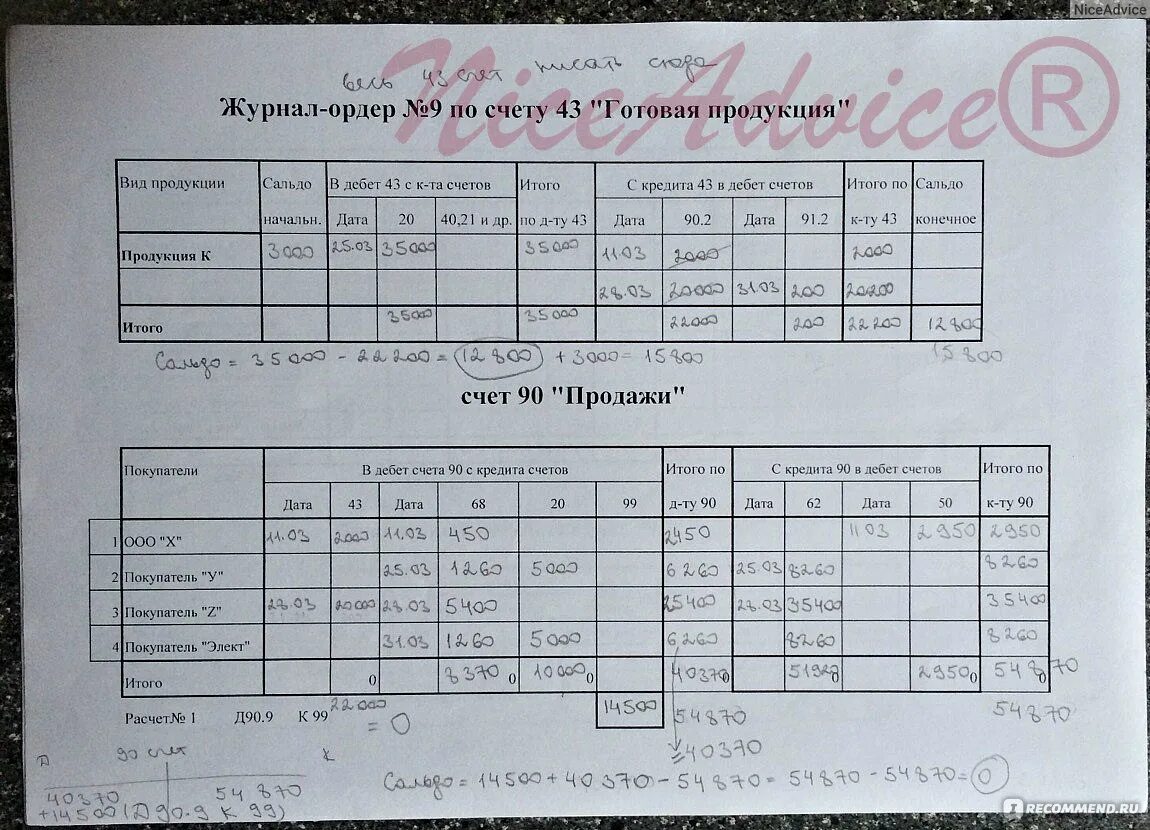 NiceAdvice
NiceAdvice®
весь 43 счет писать сюда
Журнал-ордер №9 по счету 43 "Готовая продукция"
Вид продукции Сальдо начальн. В дебет 43 с к-та счетов Итого по д-ту 43 С кредита 43 в дебет счетов Итого по к-ту 43 Сальдо конечное
Дата 20 40,21 и др. Дата 90.2 Дата 91.2
Продукция К 3000 25.03 35000 35000 11.03 2000 2000
28.03 20000 31.03 200 20200
Итого 35000 35000 22000 200 22200 12800
Сальдо = 35000 - 22200 = 12800 + 3000 = 15800 15800
счет 90 "Продажи"
Покупатели В дебет счета 90 с кредита счетов Итого по д-ту 90 С кредита 90 в дебет счетов Итого по к-ту 90
Дата 43 Дата 68 20 99 Дата 62 Дата 50
1 ООО "Х" 11.03 2000 11.03 450 2450 11.03 2950 2950
2 Покупатель "У" 25.03 1260 5000 6260 25.03 8260 8260
3 Покупатель "Z" 28.03 20000 28.03 5400 25400 28.03 35400 35400
4 Покупатель "Элект" 31.03 1260 5000 6260 8260 8260
Итого 0 8370 0 10000 0 40370 0 51920 0 2950 0 54870 0
Расчет№ 1 Д90.9 К 99 22000 = 0 14500 54870 54870
40370
90 счет
Д К
40370 54870
+14500 (Д 90.9 К 99)
Сальдо = 14500 + 40370 - 54870 = 54870 - 54870 = 0
IRECOMMEND.RU